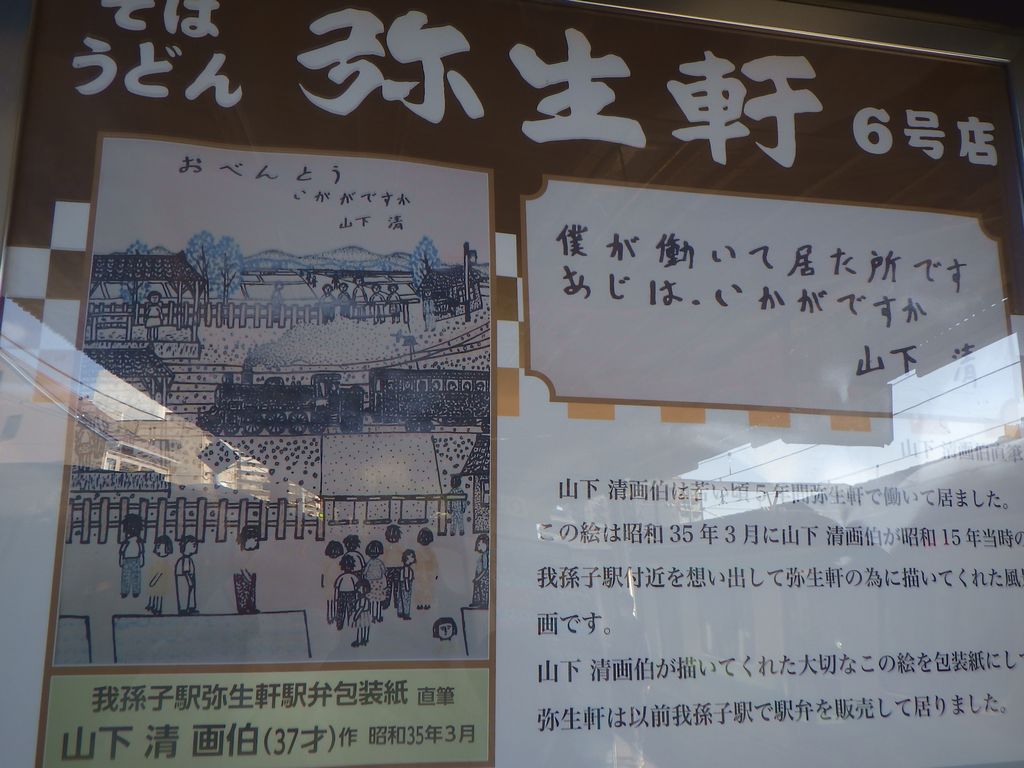 そば
うどん
弥生軒 6号店
おべんとう
いかがですか
山下 清
僕が働いて居た所です
あじは、いかがですか
山下 清
山下 清画伯は若い頃5年間弥生軒で働いて居ました。
この絵は昭和35年3月に山下 清画伯が昭和15年当時の
我孫子駅付近を想い出して弥生軒の為に描いてくれた風景
画です。
山下 清画伯が描いてくれた大切なこの絵を包装紙にして
弥生軒は以前我孫子駅で駅弁を販売して居りました。
我孫子駅弥生軒駅弁包装紙 直筆
山下 清 画伯(37才)作 昭和35年3月